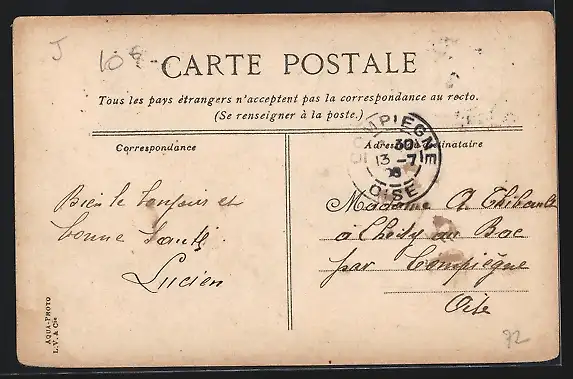 J
10 c
CARTE POSTALE
Tous les pays étrangers n'acceptent pas la correspondance au recto.
(Se renseigner à la poste.)
Correspondance
Adresse du destinataire
COMPIÈGNE
30
13-7
08
OISE
Bien le bonjour et
bonne santé
Lucien
Madame A Thibault
à Choisy au Bac
par Compiègne
Oise
AQUA-PHOTO
L.V. & Cie
72